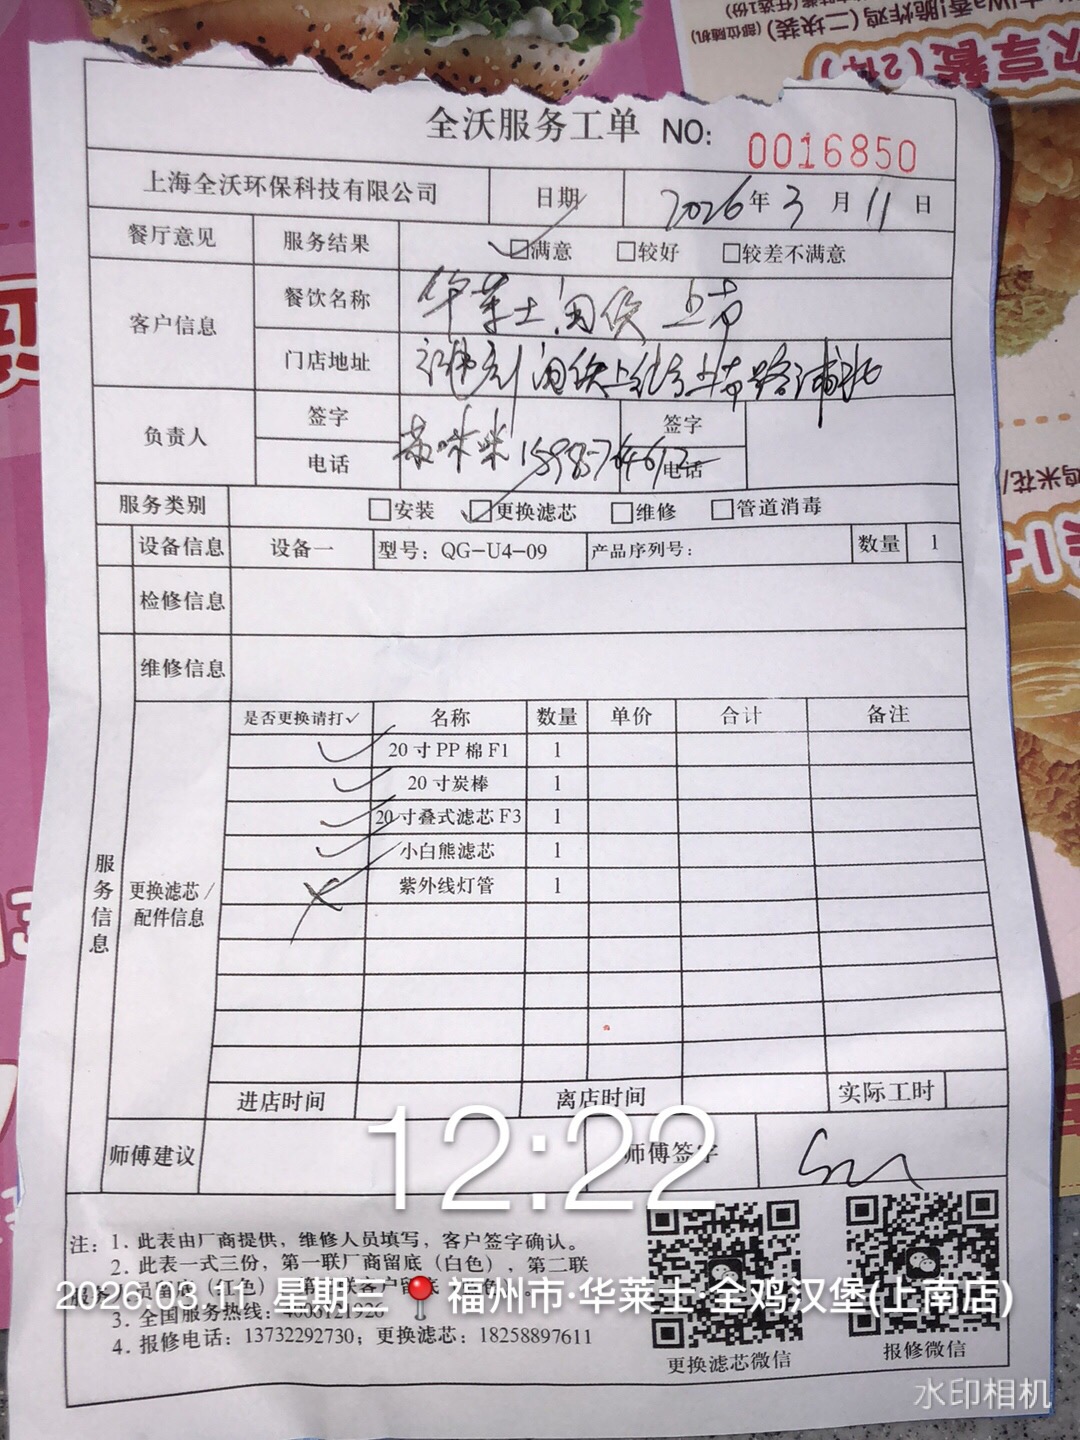 全沃服务工单 NO: 0016850
上海全沃环保科技有限公司 日期 2026年3月11日
餐厅意见 服务结果 □满意 □较好 □较差不满意
客户信息 餐饮名称 华莱士闽侯上南
门店地址 福州闽侯上街上南路
负责人 签字 苏咪咪 签字
电话 电话
服务类别 □安装 □更换滤芯 □维修 □管道消毒
设备信息 设备一 型号：QG-U4-09 产品序列号： 数量 1
检修信息
维修信息
服务信息
更换滤芯/配件信息
是否更换请打✓ 名称 数量 单价 合计 备注
✓ 20寸PP棉F1 1
✓ 20寸炭棒 1
✓ 20寸叠式滤芯F3 1
✓ 小白熊滤芯 1
✗ 紫外线灯管 1
进店时间 离店时间 实际工时
师傅建议 师傅签字
12:22
注：1. 此表由厂商提供，维修人员填写，客户签字确认。
2. 此表一式三份，第一联厂商留底（白色），第二联
服务 员留底（红色） 第 联客户留底
3. 全国服务热线：4008121926
4. 报修电话：13732292730；更换滤芯：18258897611
更换滤芯微信 报修微信
2026.03.11 星期三 福州市·华莱士·全鸡汉堡(上南店)
水印相机